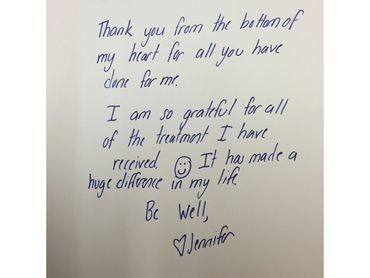 Thank you from the bottom of
my heart for all you have
done for me.
I am so grateful for all
of the treatment I have
received. ☺ It has made a
huge difference in my life.
Be Well,
♡ Jennifer